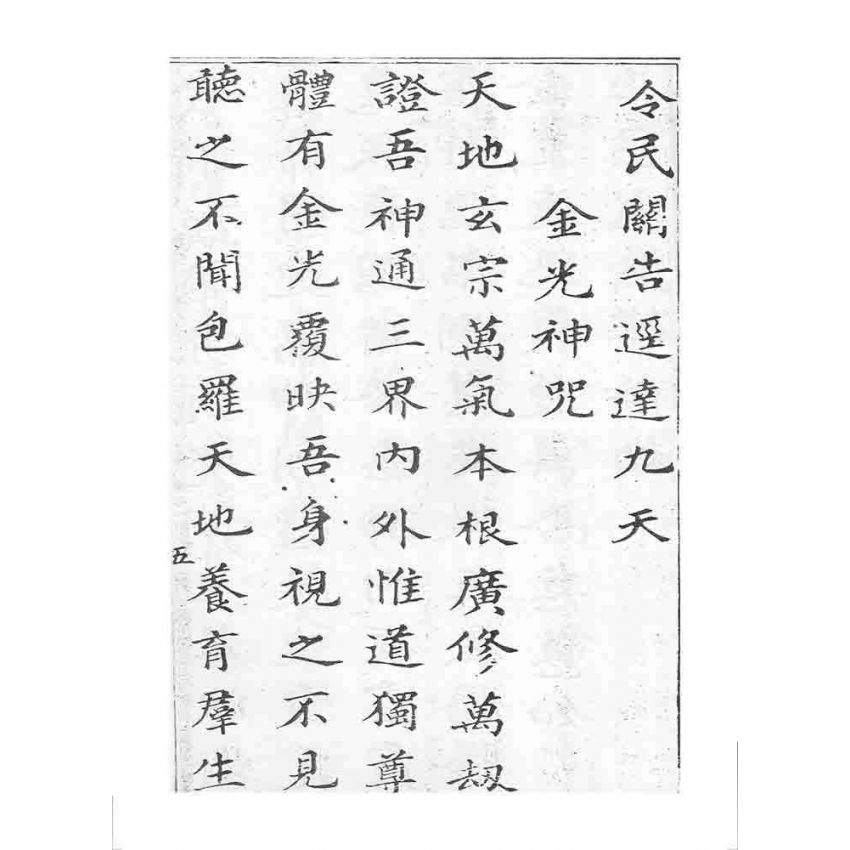 令民關告逕達九天
金光神咒
天地玄宗萬氣本根廣修萬劫
證吾神通三界內外惟道獨尊
體有金光覆映吾身視之不見
聽之不聞包羅天地養育羣生
五